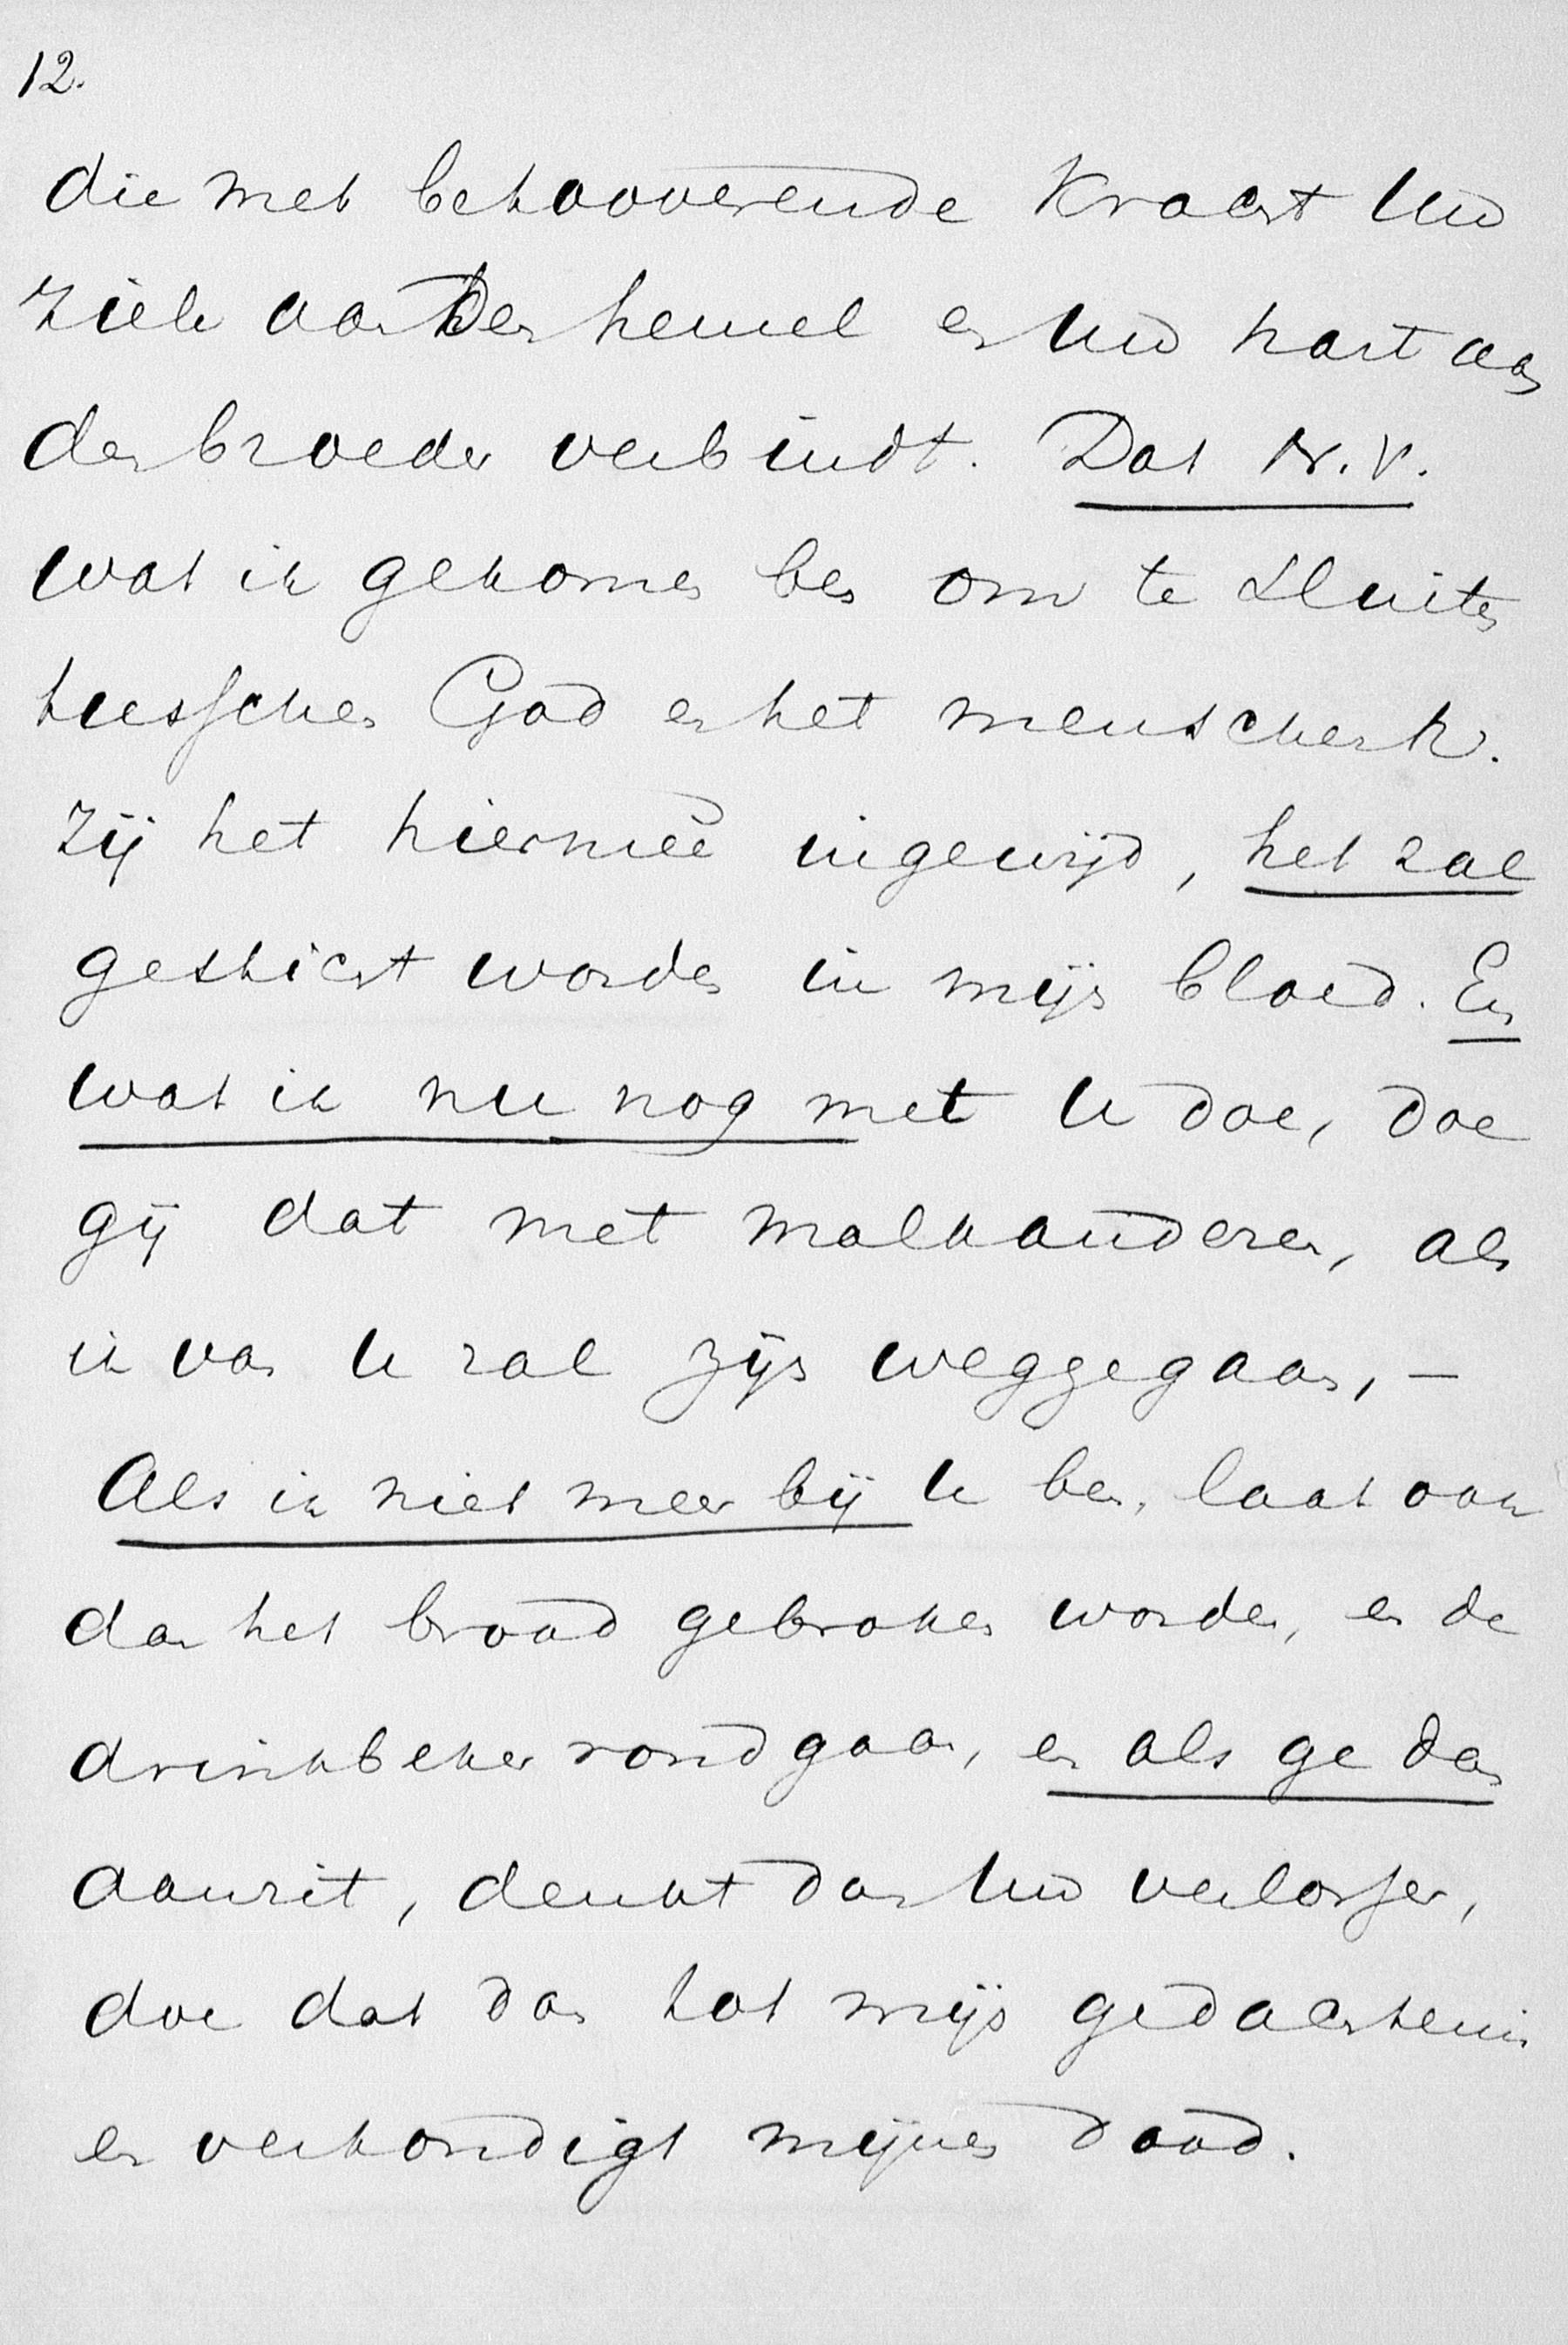 12.
die met betooverende kracht Uw
ziele aan den hemel en Uw hart aan
den broeder verbindt. Dat N.V.
wat ik gekomen ben om te sluiten
tusschen God en het menschenk.
Zij het hiermeê ingewijd, het zal
gesticht worden in mijn bloed. En
wat ik nu nog met U doe, doe
gij dat met malkanderen, als
ik van U zal zijn weggegaan, –
Als ik niet meer bij U ben, laat ook
dan het brood gebroken worden, en de
drinkbeker rondgaan, en als ge dan
aanzit, denkt dan Uw verlosser,
doe dat dan tot mijn gedachtenis
en verkondigt mijnen dood.